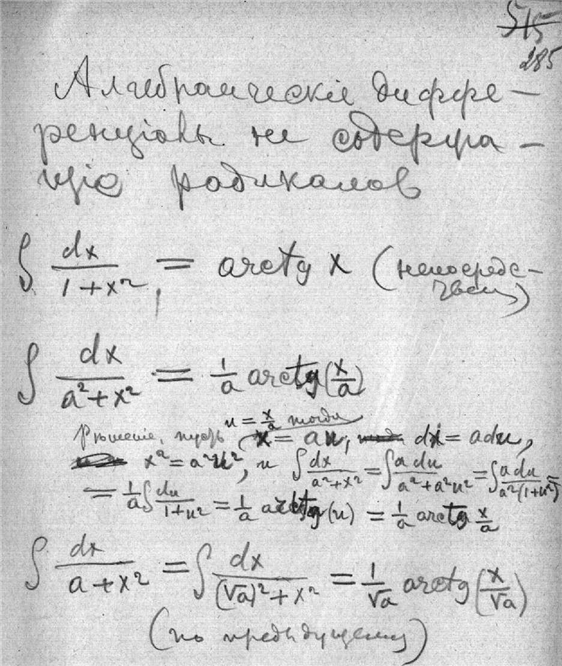 515
285
Алгебраическіе диффе-
ренціалы не содержа-
щіе радикалов
∫ dx/(1+x²) = arctg x (непосредс-
твенно)
∫ dx/(a²+x²) = 1/a arctg(x/a)
u = x/a тогда
Решеніе, пусть x = au, dx = adu,
x² = a²u², и ∫ dx/(a²+x²) = ∫ adu/(a²+a²u²) = ∫ adu/(a²(1+u²)) =
= 1/a ∫ du/(1+u²) = 1/a arctg(u) = 1/a arctg x/a
∫ dx/(a+x²) = ∫ dx/((√a)²+x²) = 1/√a arctg(x/√a)
(по предыдущему)